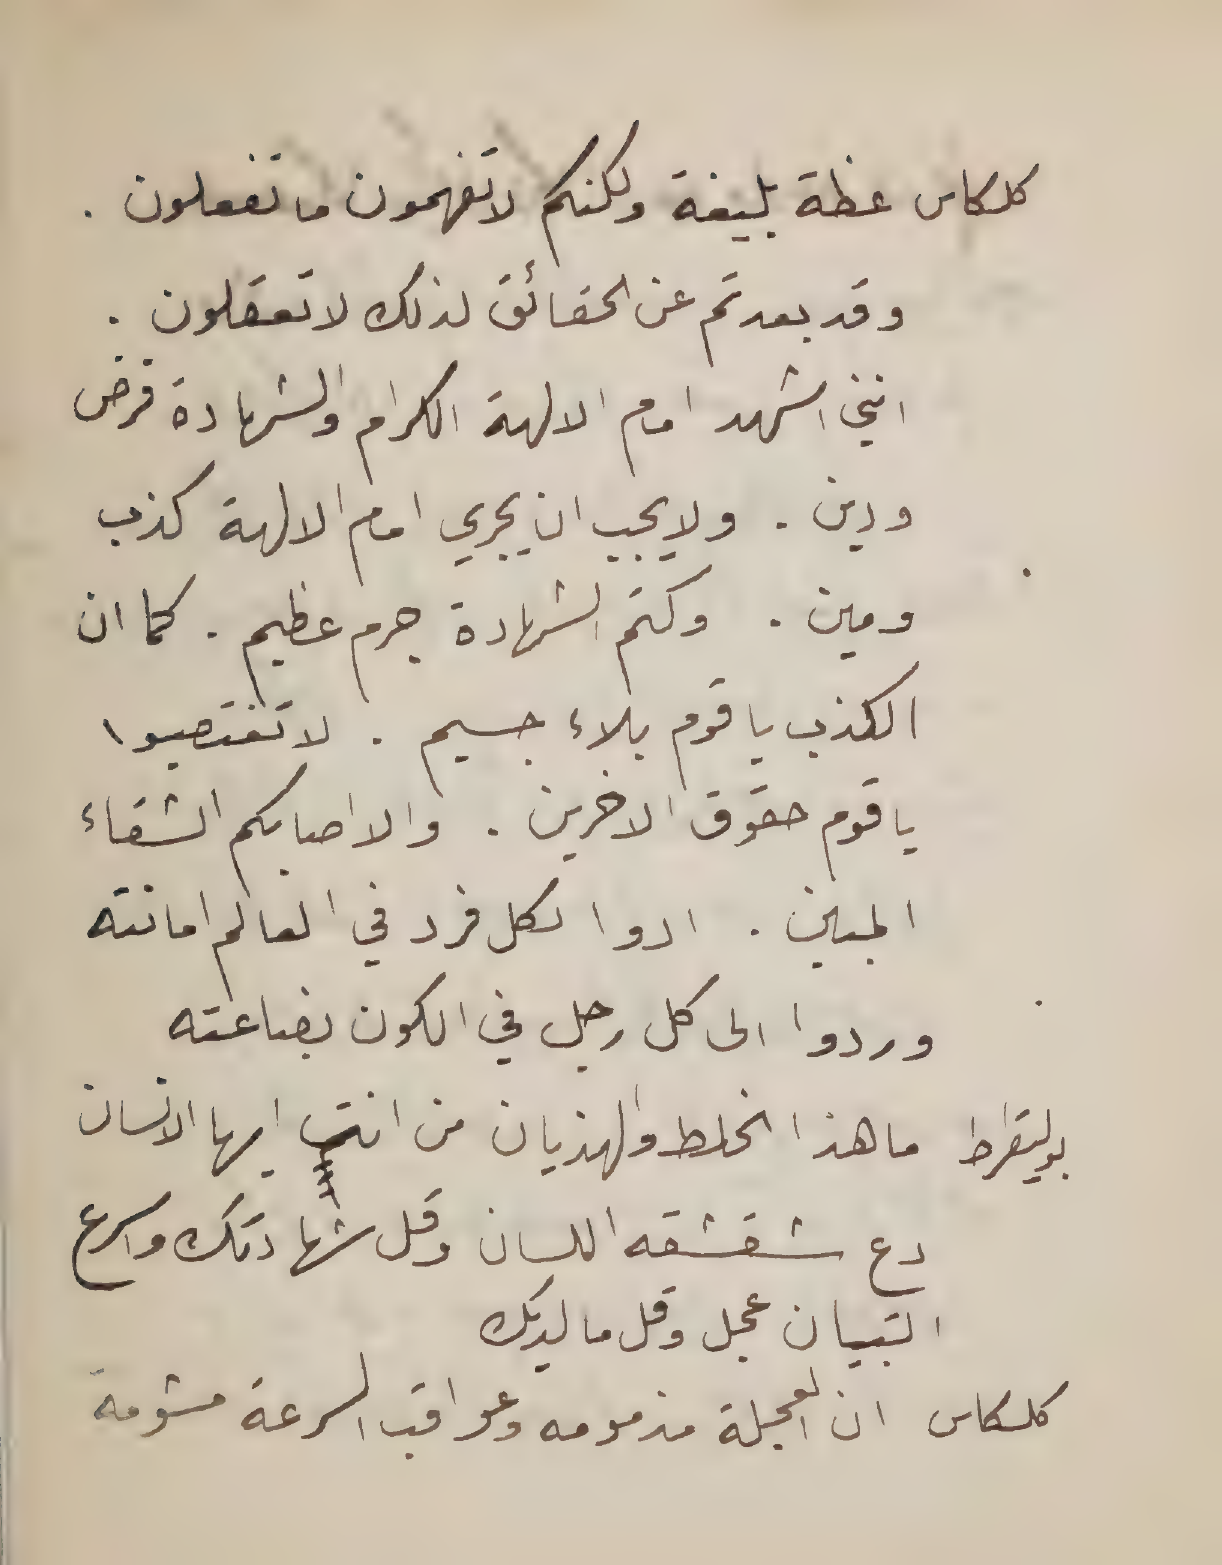 كلكاس عظة بليغة ولكنكم لا تفهمون ما تفعلون .
وقد بعدتم عن الحقائق لذلك لا تعقلون .
انني اشهد امام الالهة الكرام والشهادة فرض
ودين . ولا يجب ان يجري امام الالهة كذب
ومين . وكتم الشهادة جرم عظيم . كما ان
الكذب يا قوم بلاء جسيم . لا تغتصبوا
يا قوم حقوق الاخرين . والا اصابكم الشقاء
المبين . ادوا لكل فرد في العالم امانته
وردوا الى كل رجل في الكون بضاعته
بوليتقراط ما هذا الخلط والهذيان من انت ايها الانسان
دع شقشقه اللسان وقل شهادتك واسرع
التبيان عجل وقل ما لديك
كلكاس ان العجلة مذمومه وعواقب السرعة مشومة